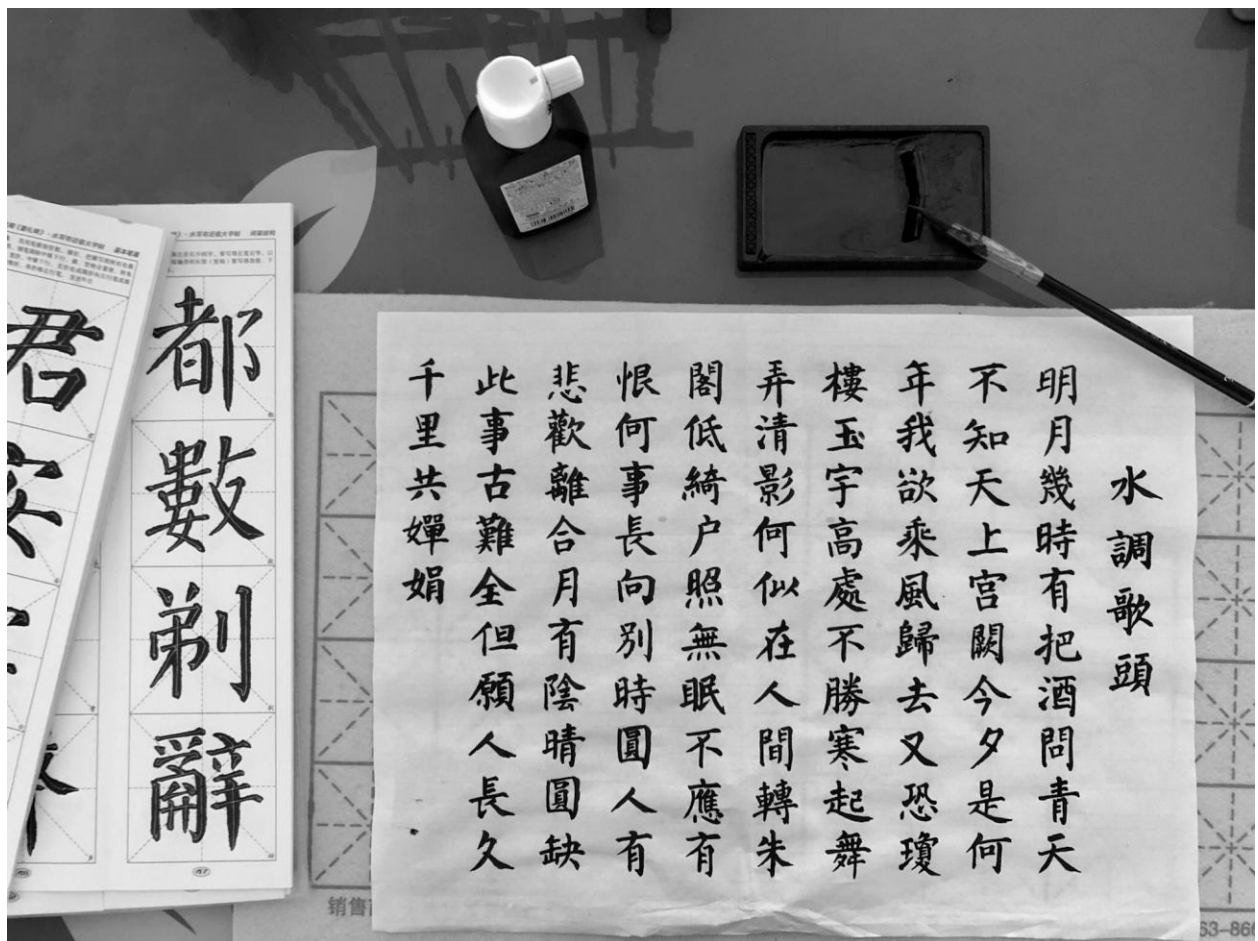 水調歌頭
明月幾時有把酒問青天
不知天上宮闕今夕是何
年我欲乘風歸去又恐瓊
樓玉宇高處不勝寒起舞
弄清影何似在人間轉朱
閣低綺户照無眠不應有
恨何事長向别時圓人有
悲歡離合月有陰晴圓缺
此事古難全但願人長久
千里共嬋娟
都
數
剃
辭
君
销售
63-860